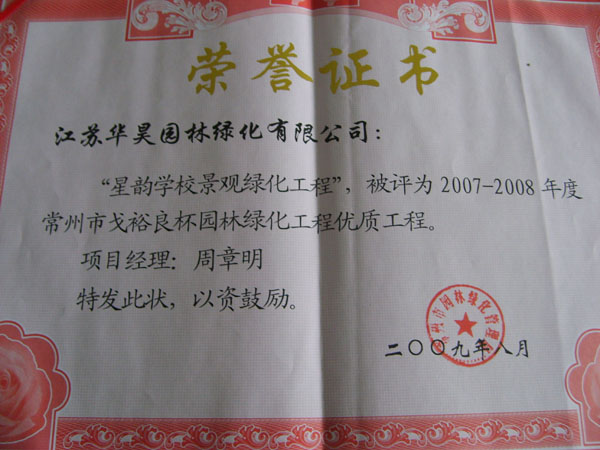 荣誉证书
江苏华昊园林绿化有限公司：
“星韵学校景观绿化工程”，被评为 2007-2008 年度
常州市戈裕良杯园林绿化工程优质工程。
项目经理：周章明
特发此状，以资鼓励。
州市园林绿化管理
二〇〇九年八月